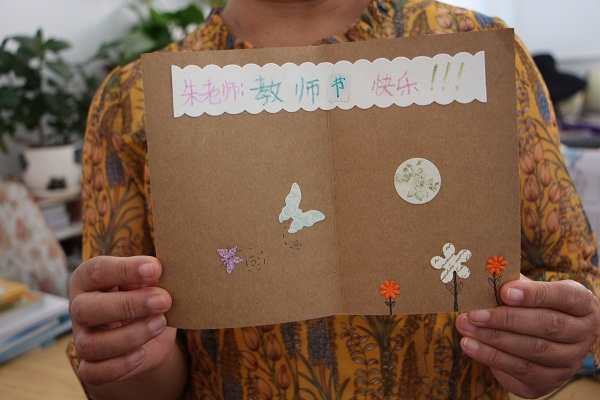 朱老师:教师节 快乐!!!